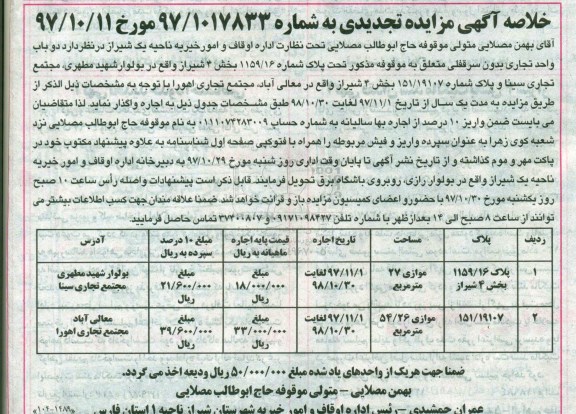 خلاصه آگهی مزایده تجدیدی به شماره ۹۷/۱۰۱۷۸۳۳ مورخ ۹۷/۱۰/۱۱
آقای بهمن مصلایی متولی موقوفه حاج ابوطالب مصلایی تحت نظارت اداره اوقاف و امورخیریه ناحیه یک شیراز در نظر دارد دو باب
واحد تجاری بدون سرقفلی متعلق به موقوفه مذکور تحت پلاک شماره ۱۱۵۹/۱۶ بخش ۴ شیراز واقع در بولوار شهید مطهری، مجتمع
تجاری سینا و پلاک شماره ۱۵۱/۱۹۱۰۷ بخش ۴ شیراز واقع در معالی آباد، مجتمع تجاری اهورا با توجه به مشخصات ذیل الذکر از
طریق مزایده به مدت یک سال از تاریخ ۹۷/۱۱/۱ لغایت ۹۸/۱۰/۳۰ طبق مشخصات جدول ذیل به اجاره واگذار نماید. لذا متقاضیان
می بایست ضمن واریز ۱۰ درصد از اجاره بها سالیانه به شماره حساب ۰۱۱۱۰۷۴۲۸۳۰۰۹ به نام موقوفه حاج ابوطالب مصلایی نزد
شعبه کوی زهرا به عنوان سپرده واریز و فیش مربوطه را همراه با فتوکپی صفحه اول شناسنامه به علاوه پیشنهاد مکتوب خود در
پاکت مهر و موم گذاشته و از تاریخ نشر آگهی تا پایان وقت اداری روز شنبه مورخ ۹۷/۱۰/۲۹ به دبیرخانه اداره اوقاف و امور خیریه
ناحیه یک شیراز واقع در بولوار رازی، روبروی باشگاه برق تحویل فرمایند. قابل ذکر است پیشنهادات واصله رأس ساعت ۱۰ صبح
روز یکشنبه مورخ ۹۷/۱۰/۳۰ با حضور و اعضای کمیسیون مزایده باز و قرائت خواهد شد. ضمنا علاقه مندان جهت کسب اطلاعات بیشتر می
توانند از ساعت ۸ صبح الی ۱۴ بعدازظهر با شماره تلفن ۰۹۱۷۱۰۹۸۴۴۷ و ۳۷۴۰۰۸۰۷ تماس حاصل فرمایید.
ردیف پلاک مساحت تاریخ اجاره قیمت پایه اجاره ماهیانه به ریال مبلغ ۱۰ درصد سپرده به ریال آدرس
۱ پلاک ۱۱۵۹/۱۶ بخش ۴ شیراز موازی ۲۷ مترمربع ۹۷/۱۱/۱ لغایت ۹۸/۱۰/۳۰ مبلغ ۱۸/۰۰۰/۰۰۰ ریال مبلغ ۲۱/۶۰۰/۰۰۰ ریال بولوار شهید مطهری مجتمع تجاری سینا
۲ ۱۵۱/۱۹۱۰۷ موازی ۵۴/۲۶ مترمربع ۹۷/۱۱/۱ لغایت ۹۸/۱۰/۳۰ مبلغ ۳۳/۰۰۰/۰۰۰ ریال مبلغ ۳۹/۶۰۰/۰۰۰ ریال معالی آباد مجتمع تجاری اهورا
ضمنا جهت هریک از واحدهای یاد شده مبلغ ۵۰/۰۰۰/۰۰۰ ریال ودیعه اخذ می گردد.
بهمن مصلایی – متولی موقوفه حاج ابوطالب مصلایی
عمران جمشیدی – رئیس اداره اوقاف و امور خیریه شهرستان شیراز ناحیه ۱ استان فارس